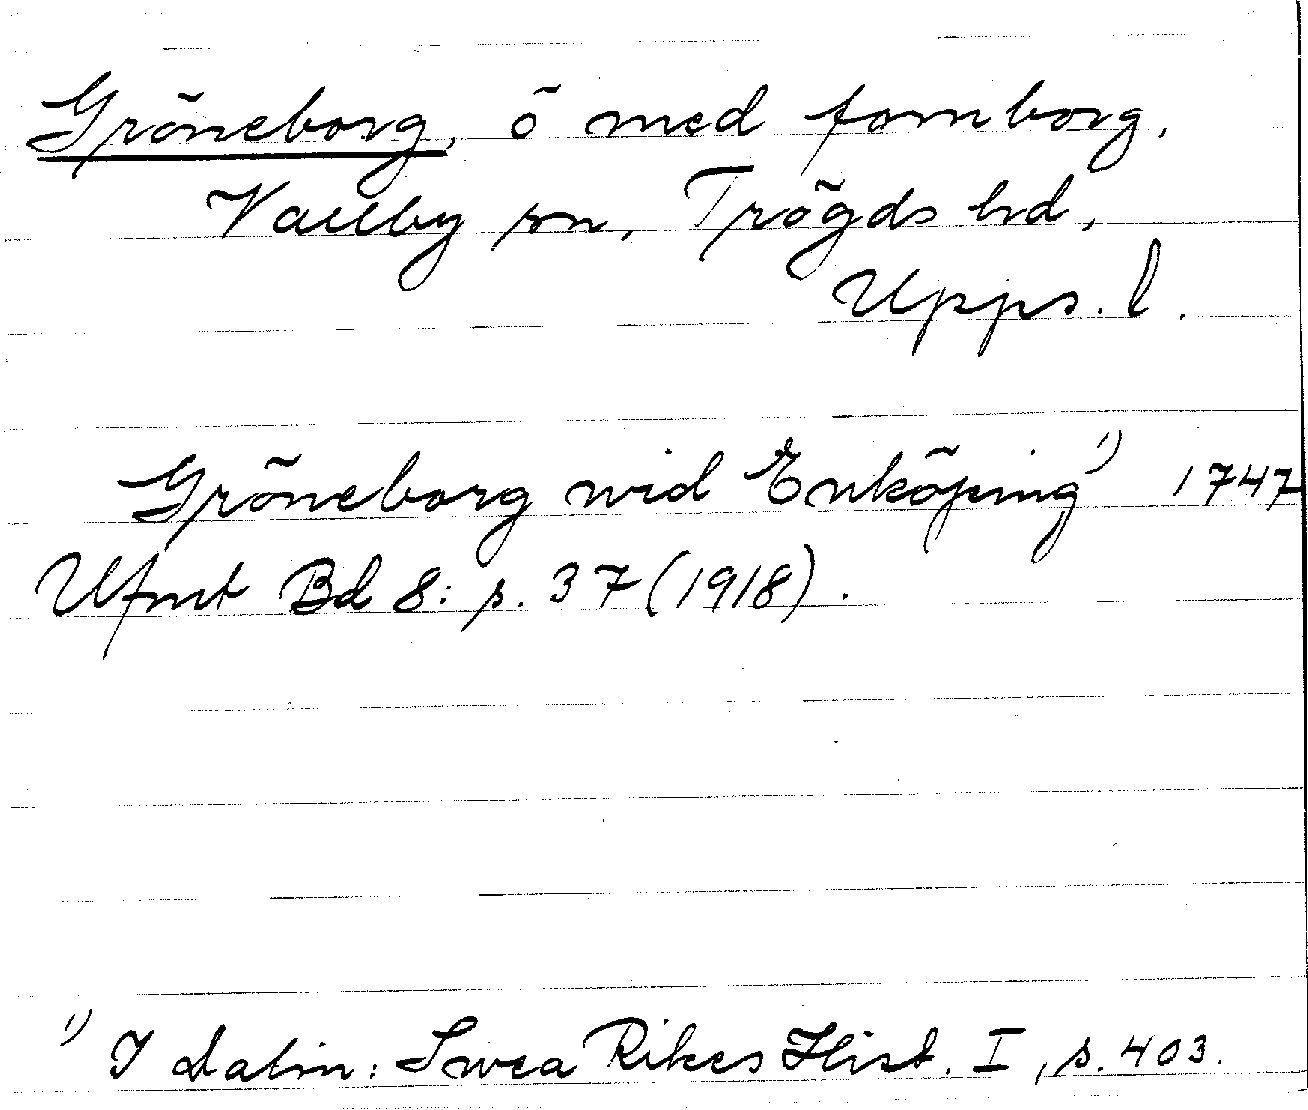 Gröneborg, ö med fornborg,
Vallby sn, Trögds hd,
Upps. l.
Gröneborg wid Enköping 1) 1747
Ufmt Bd 8: s. 37 (1918).
1) I Dalin: Swea Rikes Hist. I, s. 403.